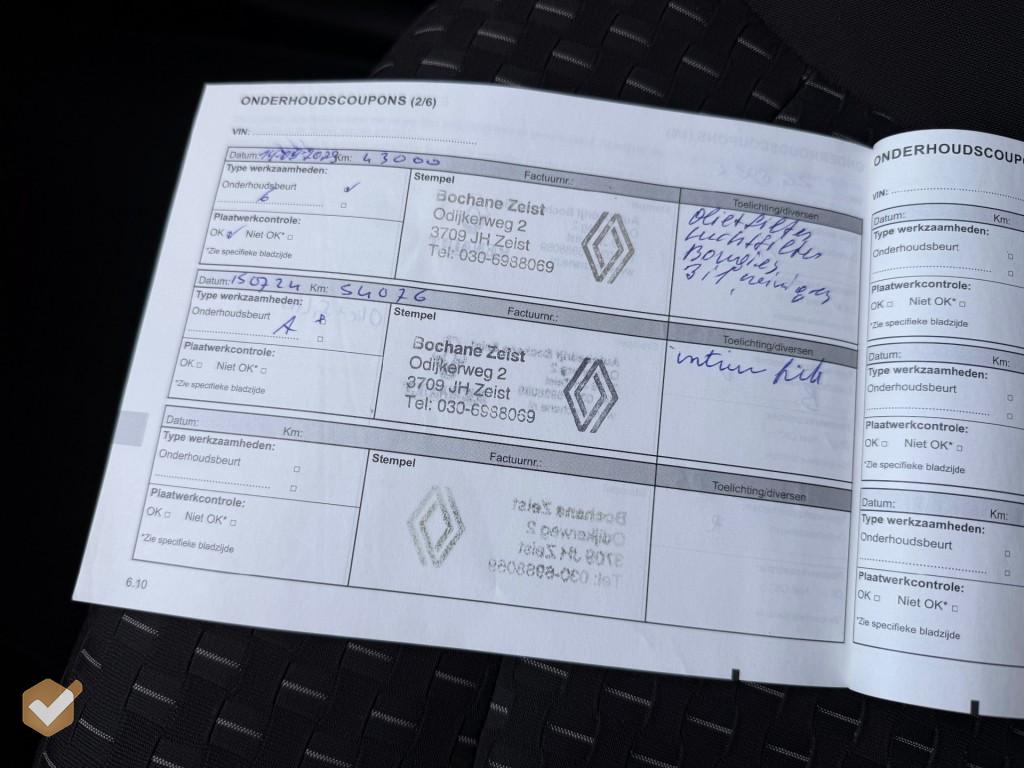 ONDERHOUDSCOUPONS (2/6)
VIN:
Datum: Km: 43000
Type werkzaamheden:
Onderhoudsbeurt
6
Plaatwerkcontrole:
OK Niet OK*
*Zie specifieke bladzijde
Stempel
Factuurnr.:
Bochane Zeist
Odijkerweg 2
3709 JH Zeist
Tel: 030-6988069
Toelichting/diversen
Oliefilter
Luchtfilter
Bougies
Datum: 150724 Km: 54076
Type werkzaamheden:
Onderhoudsbeurt
A
Plaatwerkcontrole:
OK Niet OK*
*Zie specifieke bladzijde
Stempel
Factuurnr.:
Bochane Zeist
Odijkerweg 2
3709 JH Zeist
Tel: 030-6988069
Toelichting/diversen
Datum: Km:
Type werkzaamheden:
Onderhoudsbeurt
Plaatwerkcontrole:
OK Niet OK*
*Zie specifieke bladzijde
Stempel
Factuurnr.:
Bochane Zeist
Odijkerweg 2
3709 JH Zeist
Tel: 030-6988069
Toelichting/diversen
6.10
ONDERHOUDSCOUP
VIN:
Datum: Km:
Type werkzaamheden:
Onderhoudsbeurt
Plaatwerkcontrole:
OK Niet OK*
*Zie specifieke bladzijde
Datum: Km:
Type werkzaamheden:
Onderhoudsbeurt
Plaatwerkcontrole:
OK Niet OK*
*Zie specifieke bladzijde
Datum: Km:
Type werkzaamheden:
Onderhoudsbeurt
Plaatwerkcontrole:
OK Niet OK*
*Zie specifieke bladzijde